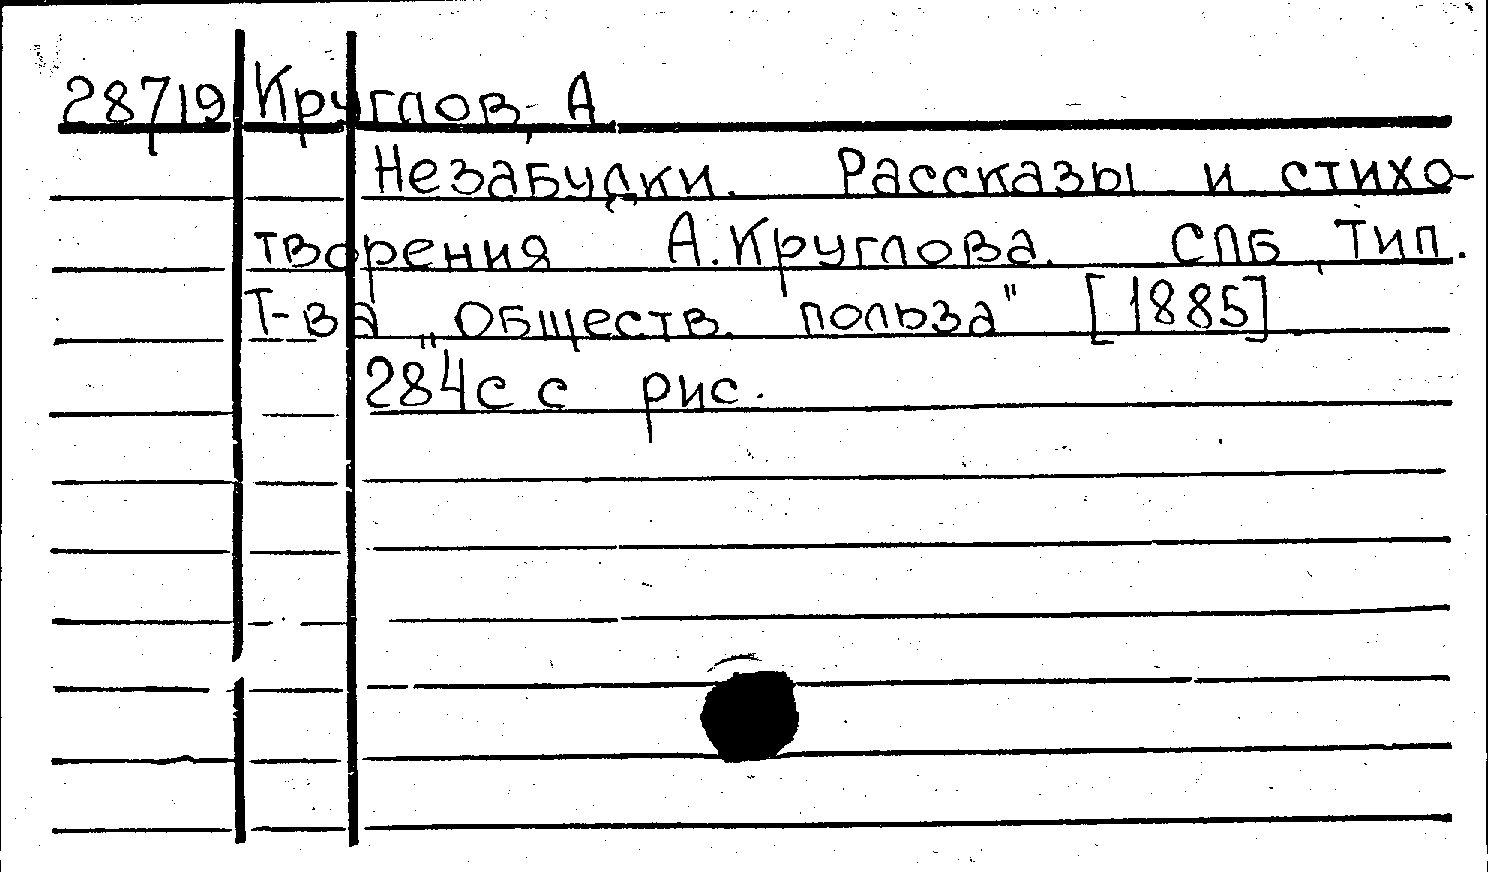 28719 Круглов, А.
Незабудки. Рассказы и стихо-
творения А.Круглова. СПБ, Тип.
Т-ва „Обществ. польза" [1885]
284с с рис.